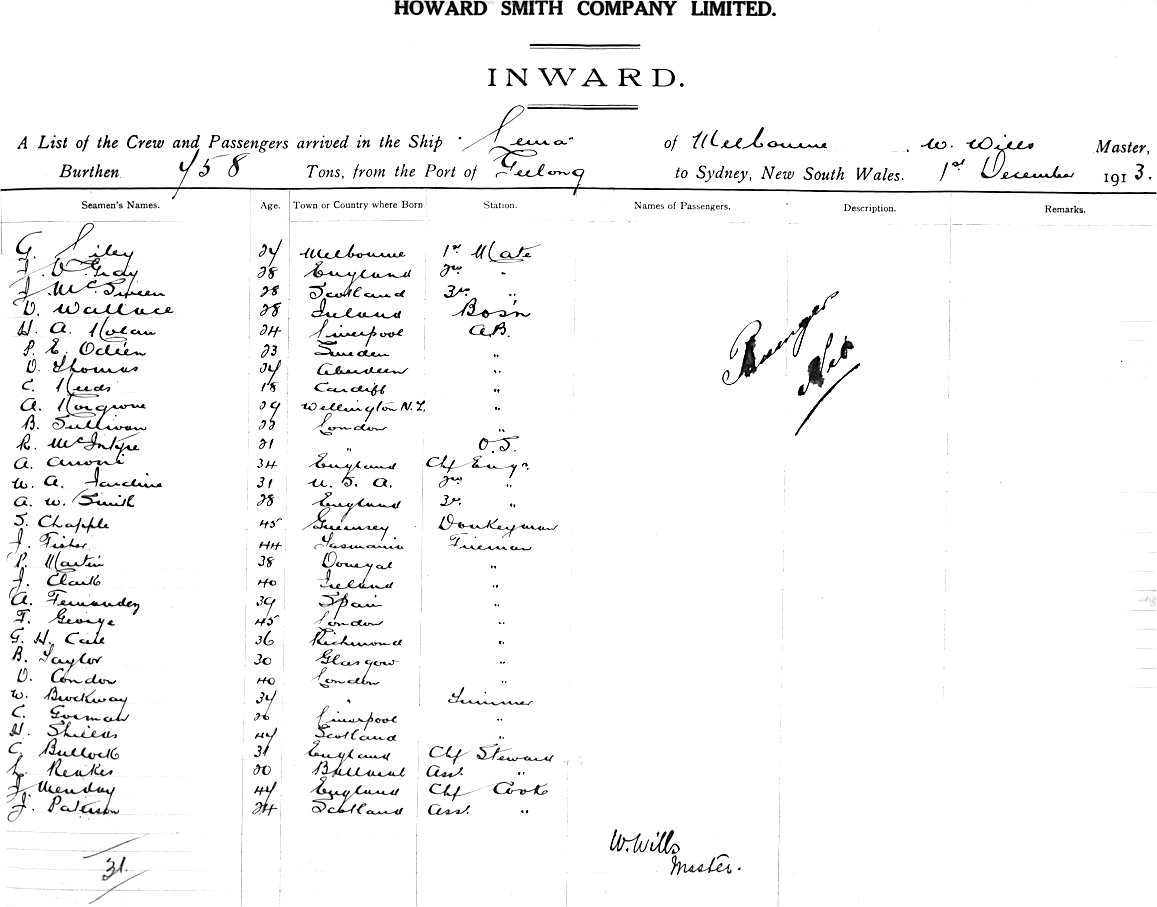 HOWARD SMITH COMPANY LIMITED.
INWARD.
A List of the Crew and Passengers arrived in the Ship "Lema" of Melbourne, W. Wills Master,
Burthen 458 Tons, from the Port of Geelong to Sydney, New South Wales. 1st December 1913.
Seamen's Names. Age. Town or Country where Born Station. Names of Passengers. Description. Remarks.
G. Liley 24 Melbourne 1st Mate
J. V. Gray 28 England 2nd "
J. McSween 28 Scotland 3rd "
D. Wallace 28 Ireland Bos'n
H. A. Nolan 24 Liverpool A.B.
P. E. Odeen 23 Sweden "
D. Thomas 24 Aberdeen "
C. Needs 18 Cardiff "
A. Norgrove 29 Wellington N.Z. "
B. Sullivan 22 London "
R. McIntyre 21 " O.S.
A. 34 England Chf Engr.
W. A. Jardine 31 U. S. A. 2nd "
A. W. Smith 28 England 3rd "
S. Chapple 45 Guernsey Donkeyman
J. Fisher 44 Tasmania Fireman
P. Martin 38 Donegal "
J. Clark 40 Ireland "
A. Fernandez 39 Spain "
F. George 45 London "
G. H. Cale 36 Richmond "
B. Taylor 30 Glasgow "
D. Condon 40 London "
W. Brockway 34 " Trimmer
C. Gorman 26 Liverpool "
H. Shields 44 Scotland "
C. Bullock 31 England Chf Steward
L. Reakes 20 Ballarat Asst. "
J. Menday 44 England Chf Cook
J. Paterson 24 Scotland Asst. "
Passenger
Nil
31.
W. Wills
Master.